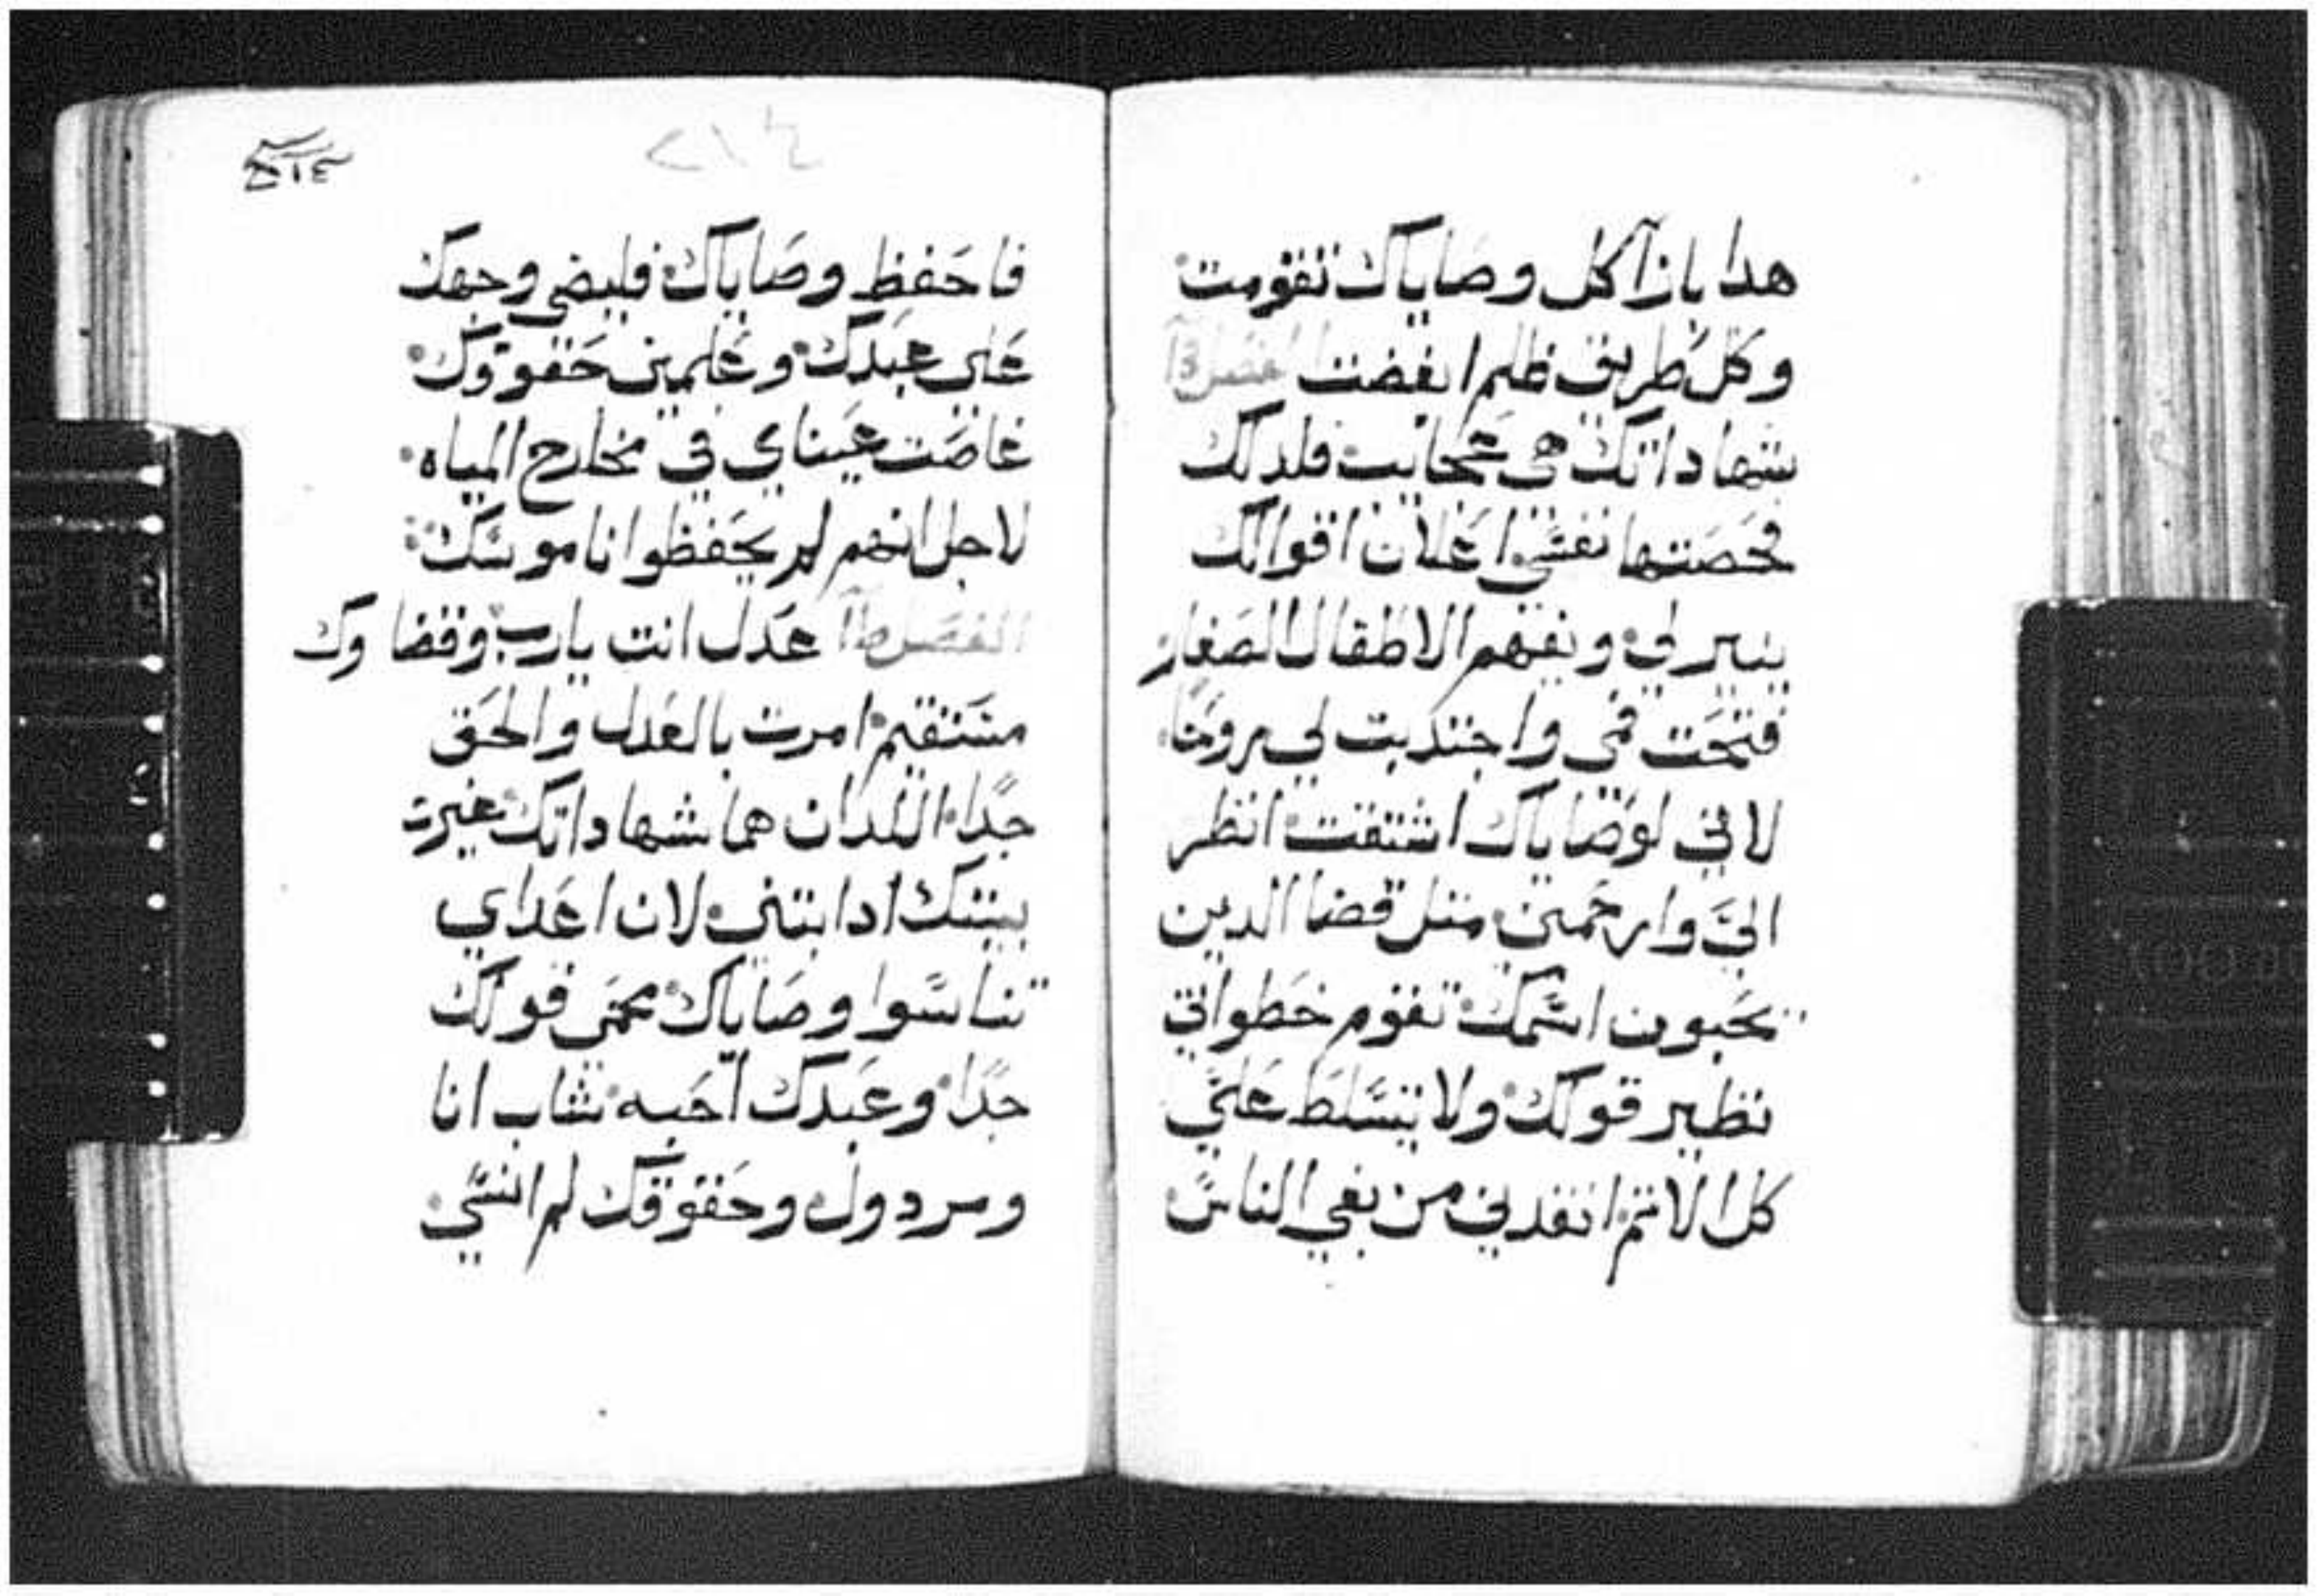 هدا بازآ كل وصاياك تقومت
وكل طريق ظلم ابغضت
شهاداتك هي عجايب فلدلك
فحصتها نفسي اعلان اقوالك
ينير لي ويفهم الاطفال الصغار
فتحت فمي واجتدبت لي روحًا
لاني لوصاياك اشتقت انظر
اليَّ وارحمني متل قضا الدين
يحبون اسمك تقوم خطواتي
نظير قولك ولا يتسلط عليَّ
كل الاتم انقدني من بغي الناس
٢١٤
فاحفظ وصاياك فليضي وجهك
على عبدك وعلمني حقوقك
غاصت عيناي في مخارج المياه
لاجل انهم لم يحفظوا ناموسك
الفصل عدل انت يارب وقضاوك
مستقيم امرت بالعدل والحق
جدًا اللدان هما شهاداتك غيرت
بيتك ادابتني لان اعداي
تناسوا وصاياك محمى قولك
جدًا وعبدك احبه شاب انا
ومردول وحقوقك لم انسي